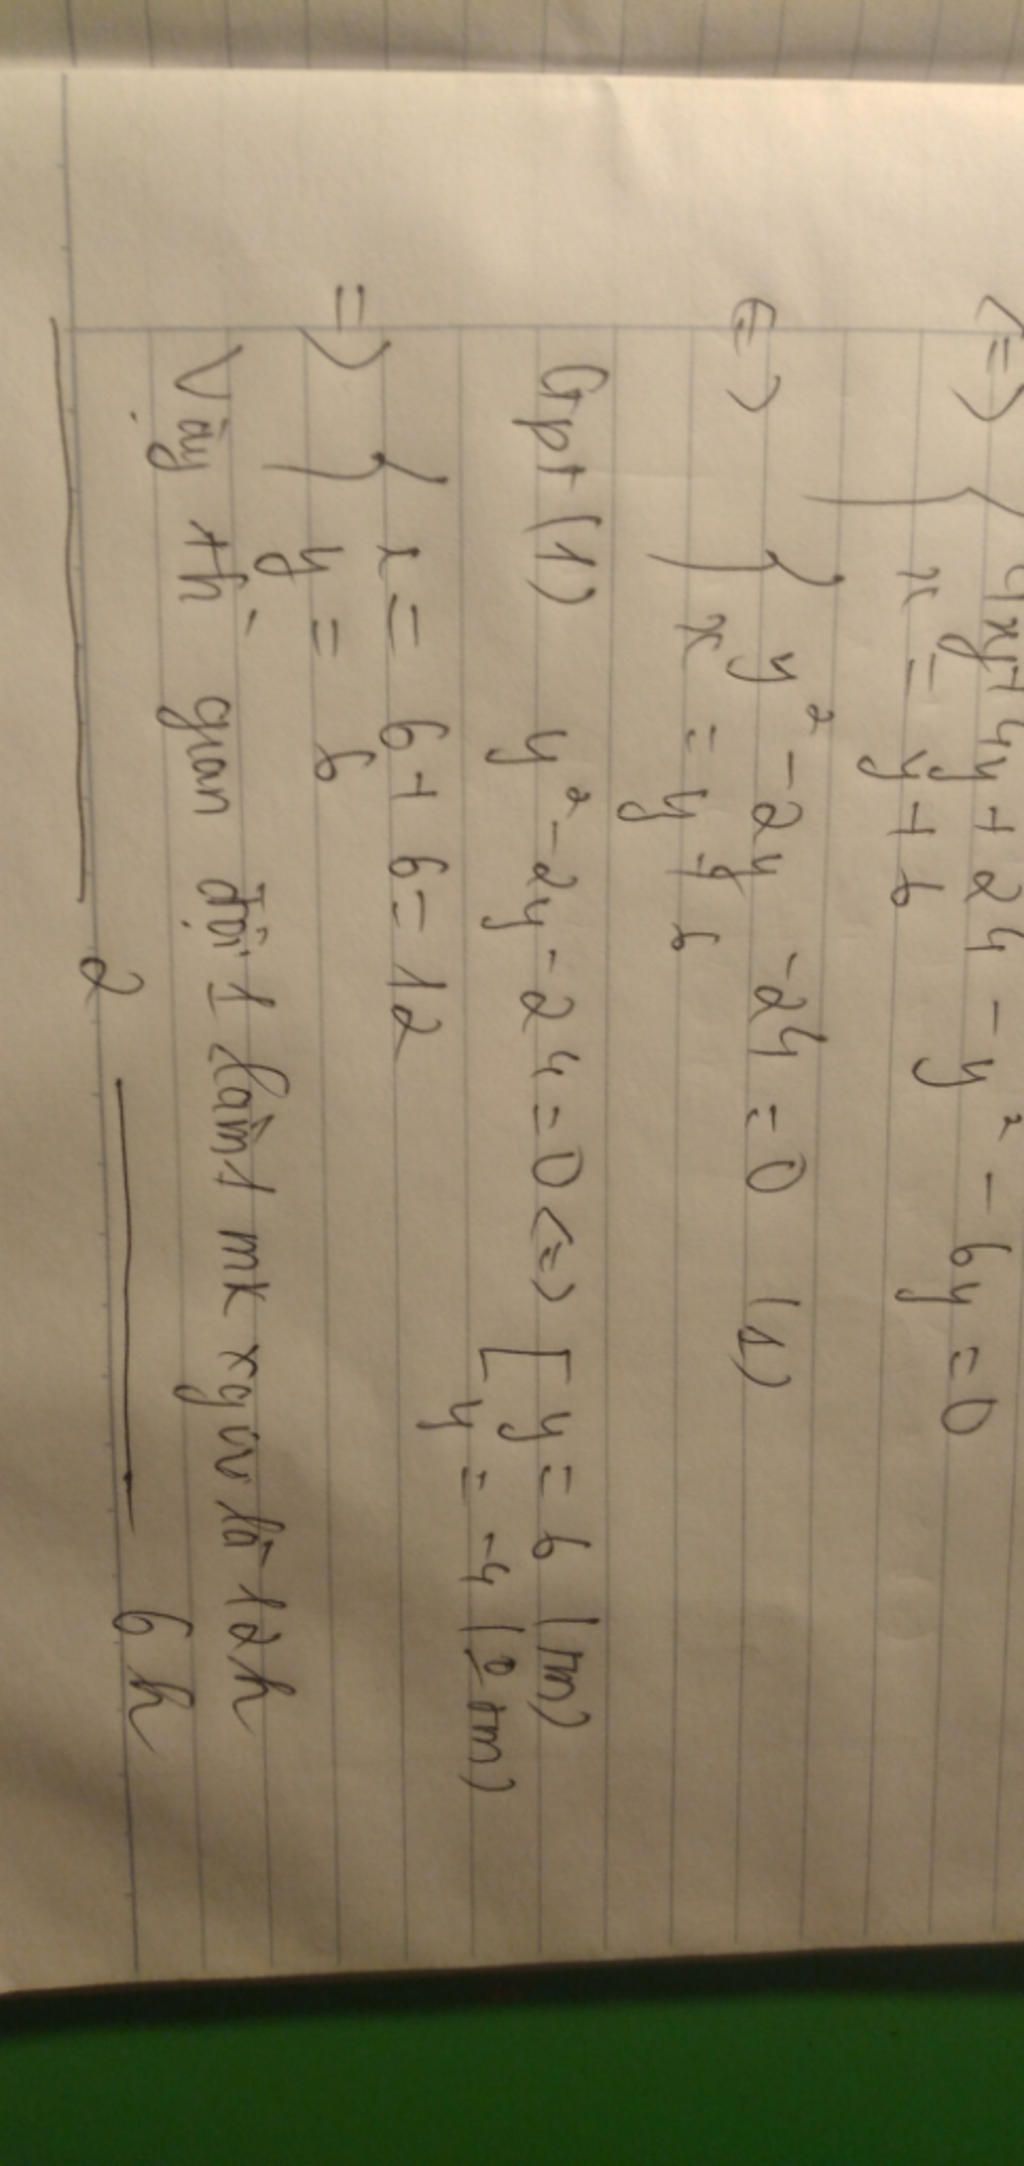 <=> { 4xy + 4y + 24 - y² - 6y = 0
x = y + 6
<=> { y² - 2y - 24 = 0 (1)
x = y + 6
Gpt (1) y² - 2y - 24 = 0 <=> [ y = 6 (tm)
y = -4 (0 tm)
=> { x = 6 + 6 = 12
y = 6
Vậy thì gian đội 1 làm 1 mk xg vv là 12h
2 6h